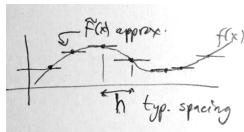 f̃(x) approx.
f(x)
h
typ. spacing